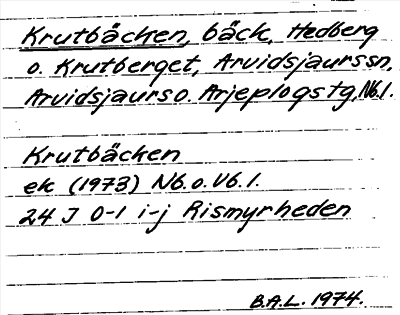 Krutbäcken, bäck, Hedberg
o. Krutberget, Arvidsjaurssn,
Arvidsjaurs o. Arjeplogs tg, Nb.l.
Krutbäcken
ek (1973) Nb. o. Vb. l.
24 J 0-1 i-j Rismyrheden
B.A.L. 1974.